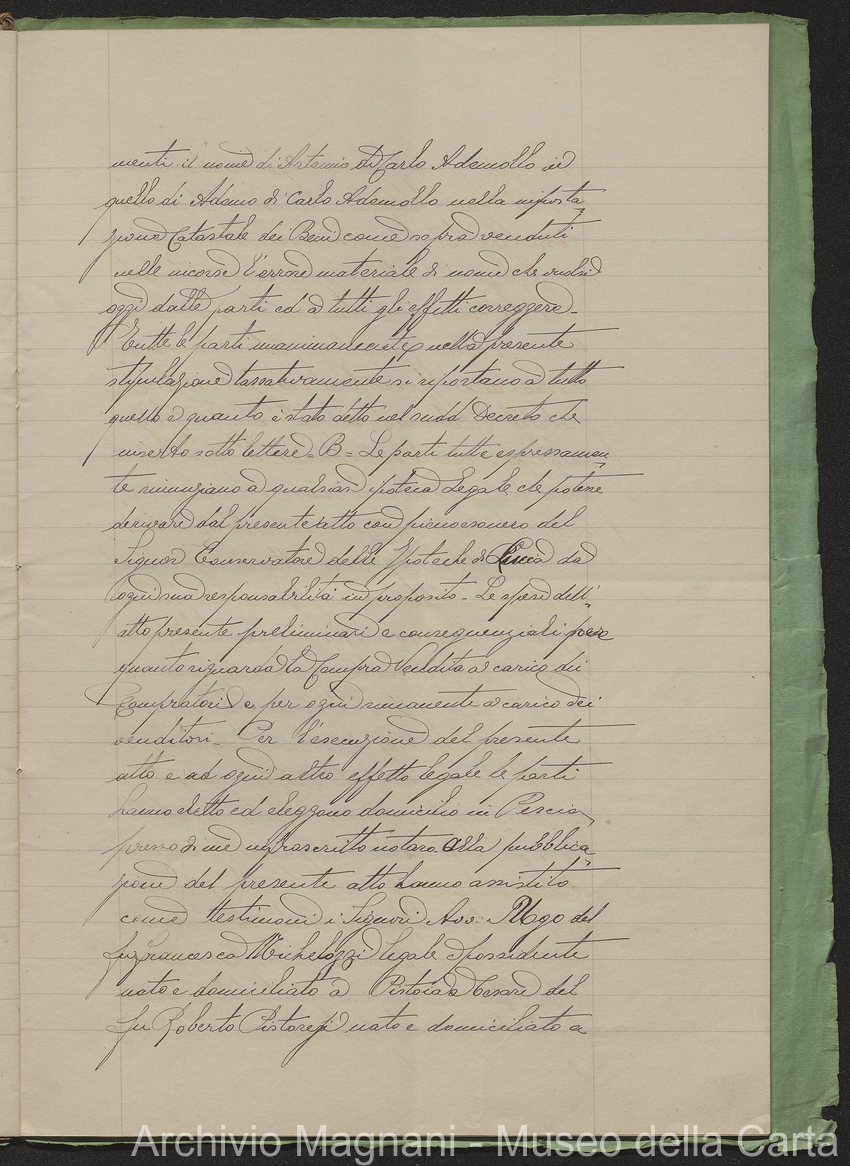 menti il nome di Artemio di Carlo Ademollo in
quello di Adamo di Carlo Ademollo nella imposta
zione Catastale dei Beni come sopra venduti
nelle incorse l'errore materiale di nome che vuolsi
oggi dalle parti ed a tutti gli effetti correggere -
Tutte le parti unanimamente nella presente
stipulazione tassativamente si riportano a tutto
quello e quanto è stato detto nel sudd Decreto che
inserto sotto lettera = B = Le parti tutte espressamen
te rinunziano a qualsiasi ipoteca Legale che potesse
derivare dal presente atto con pieno esonero del
Signor Conservatore delle Ipoteche di da
ogni sua responsabilità in proposito - Le spese dell'
atto presente preliminari e consequenziali per
quanto riguarda la Compra Vendita a carico dei
Compratori e per ogni rimanente a carico dei
venditori - Per l'esecuzione del presente
atto e ad ogni altro effetto legale le parti
hanno eletto ed eleggono domicilio in Pescia
presso di me infrascritto notaro. Alla pubblica
zione del presente atto hanno assistito
come testimoni i Signori Avv: Ugo del
fu Francesco Michelozzi legale possidente
nato e domiciliato a Pistoia e Cesare del
fu Roberto Pistoresi nato e domiciliato a
Archivio Magnani - Museo della Carta